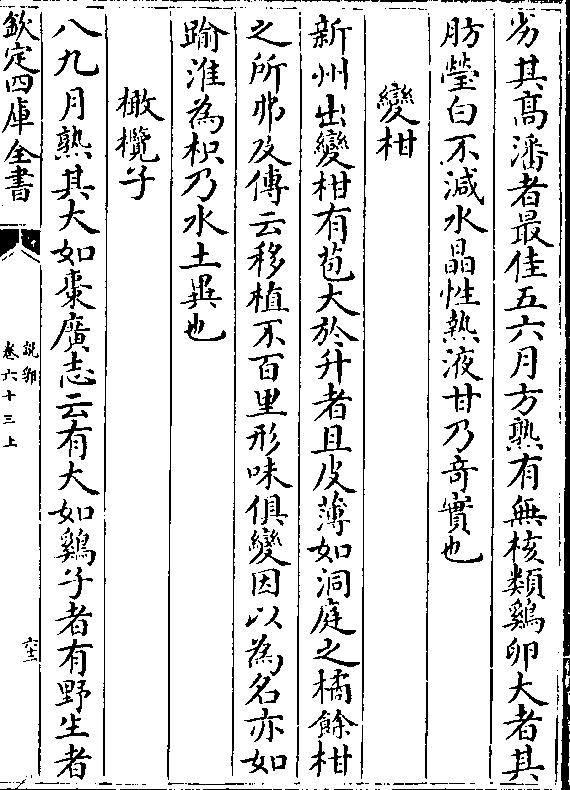 劣其髙潘者最佳五六月方熟有無核類鷄卵大者其
肪瑩白不減水晶性熱液甘乃奇實也
變柑
新州出變柑有苞大於升者且皮薄如洞庭之橘餘柑
之所弗及傳云移植不百里形味俱變因以為名亦如
踰淮為枳乃水土異也
橄欖子
八九月熟其大如棗廣志云有大如鷄子者有野生者
欽定四庫全書
說郛
卷六十三上
六十三